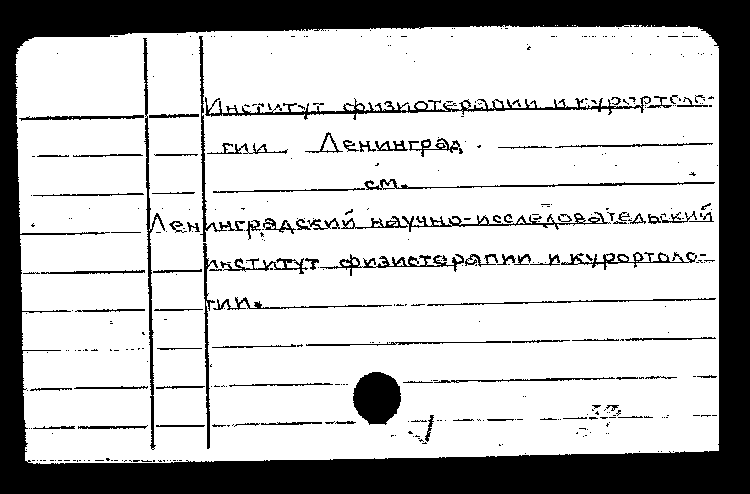 Институт физиотерапии и курортоло-
гии. Ленинград.
см.
Ленинградский научно-исследовательский
институт физиотерапии и курортоло-
гии.